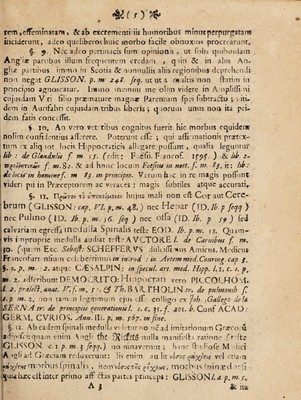 ( 5 )
rem, effeminatam, & ab excrementiis humoribus minus perpurgatam
inciderunt, adeo quelibet eos huic morbo facile obnoxios procrearunt.
§. 9. Nec adeo pertinax sum opinionis, ut solis quibusdam
Angliæ partibus illum frequentem credam, quin & in aliis An-
gliæ partibus immo in Scotia & nonnullis aliis regionibus deprehendi
non neget GLISSON. p. m 248. seq. ut ut a multis non statim in
principio agnoscatur. Immo memini me olim videre in Amplissimi
cujusdam Viri filio prænature magnæ Parentum spei subtracto; vidi-
dem in Aurifabri cujusdam tribus liberis; quorum unus non ita pri-
dem fatis concessit.
§. 10. An vero veteribus cognitus fuerit hic morbus equidem
nolim confidentius asserere. Poterunt esse; qui affirmationis prætex-
tum ex aliquot locis Hippocratis allegare possunt, qualia leguntur
lib. de Glandulis f m 15. (edit: Foësii Francof. 1595. & lib. 2.
f. m. 82. & ad hunc locum Foësius in not. f. m. 85. it: lib:
de locis in homine f. m 83. in principio. Verum hæc in re magis possunt
videri pii in Præceptorem ac veraces: magis subtiles atque accurati,
§. 11. mali non est Cor aut Cere-
brum (GLISSON: cap. VI. p. m. 48.) nec Hepar (ID. ib. p seqq)
nec Pulmo (ID. ib. p. m. 56. seq) nec ossa (ID. ib. p 59) sed
calvariam egressa medulla Spinalis teste EOD. ib. p. m. 12. Quam-
vis improprie medulla audiat teste AUCTORE l. de Carnibus f m
30. (quem Exc. Sebast: SCHEFFERUS dulcissimus Amicus, Medicus
Francofurtensium celeberrimus in introd: in Artem med Conring. cap 3.
§. 9. p. m. 2. atque CÆSALPIN: in specul. art. med. Hipp. l. 1. c. 1. p.
m. 2. adscribunt DEMOCRITO: Hippocrati vero PICCOLHOM.
l. 2 prælect. anat. VI. f. m. 51. & Th. BARTHOLIN. de pulmonib. f.
1. p. m. 2. non tamen legitimum ejus esse colligo ex Joh. Gallego de la
SERNA tr. de principiis generationis l. 1. c. 31. f. 201. b. Conf ACAD:
GERM. CURIOS. Ann. III. p. m. 567. in fine.
§. 12. Ab eadem spinali medulla videtur non ad imitationum Græcorum
adipisci quam enim Angli the Rickets nulla manifesta ratione (teste
GLISSON. c. 1 p. m. 3 seqq.) nominaverunt; hanc studiose Medici
Angli ad Græciam reduxerunt: Iis enim audit
morbus spinalis, item morbus spinæ dorsi
quia hæc est inter primo affectas partes princeps: GLISSON l. a p. m. 5.
A 3 & ita